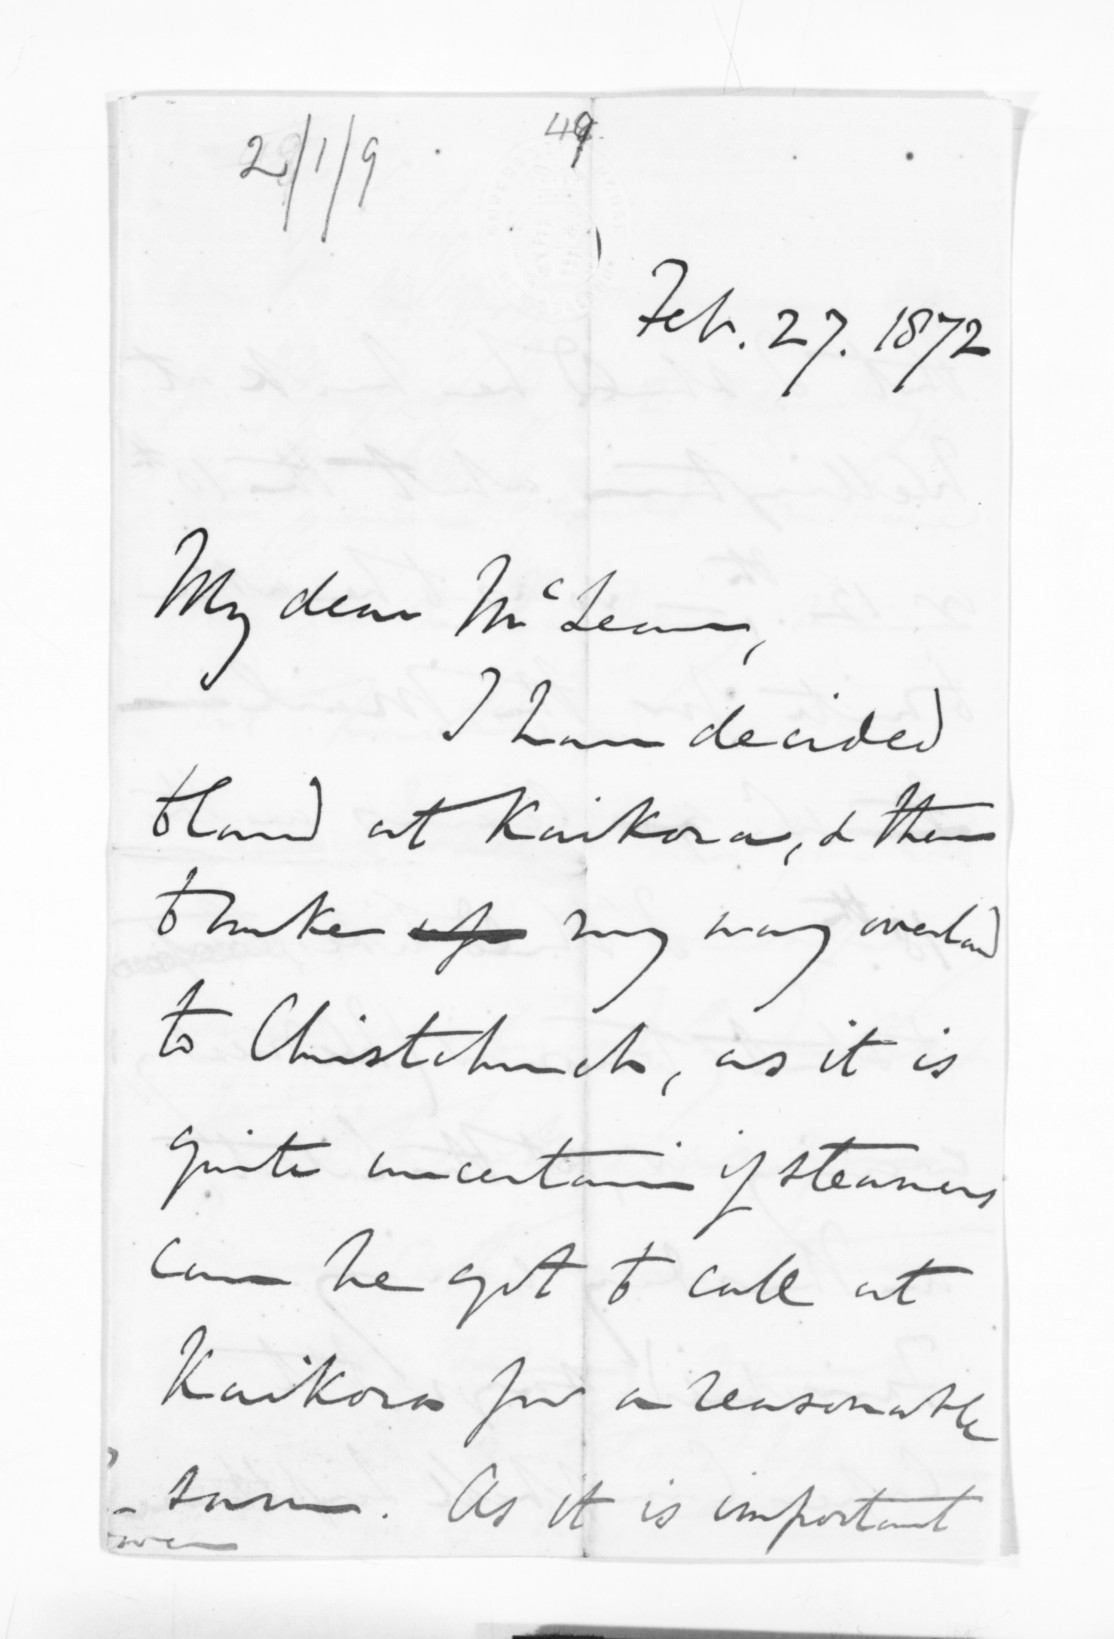 2/1/9
49
Feb. 27. 1872
My dear McLean,
I have decided
to land at Kaikora, & then
to make up my way overland
to Christchurch, as it is
quite uncertain if steamers
can be got to call at
Kaikora for a reasonable
sum. As it is important